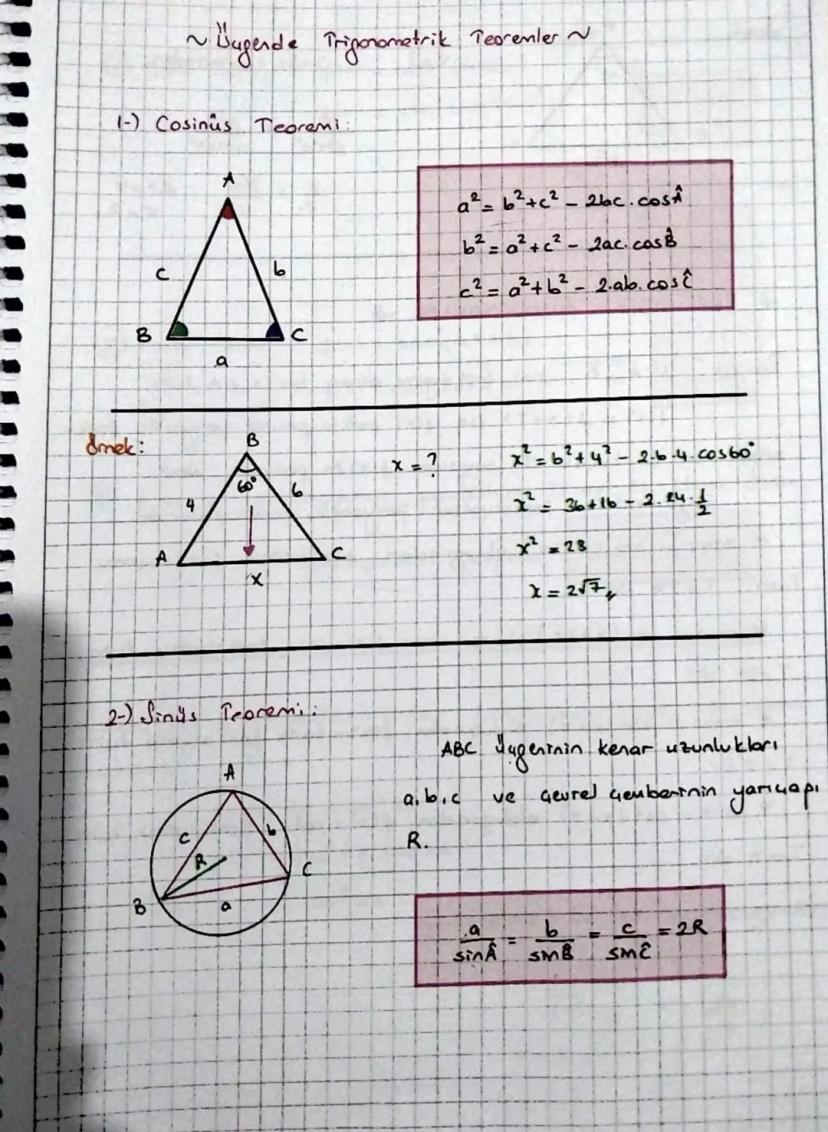 ~ Üçgende Trigonometrik Teoremler ~
1-) Cosinüs Teoremi:
A
c
b
B
C
a
a² = b²+c² - 2bc . cosÂ
b² = a²+c² - 2ac. cosB̂
c² = a²+b² - 2.ab. cosĈ
Örnek:
B
60°
4
6
A
C
x
x = ?
x² = 6²+4² - 2.6.4. cos60°
x² = 36+16 - 2.24.1/2
x² = 28
x = 2√7
2-) Sinüs Teoremi:
A
c
b
R
B
C
a
ABC Üçgeninin kenar uzunlukları
a,b,c ve çevrel çemberinin yarıçapı
R.
a/sinÂ = b/sinB̂ = c/sinĈ = 2R